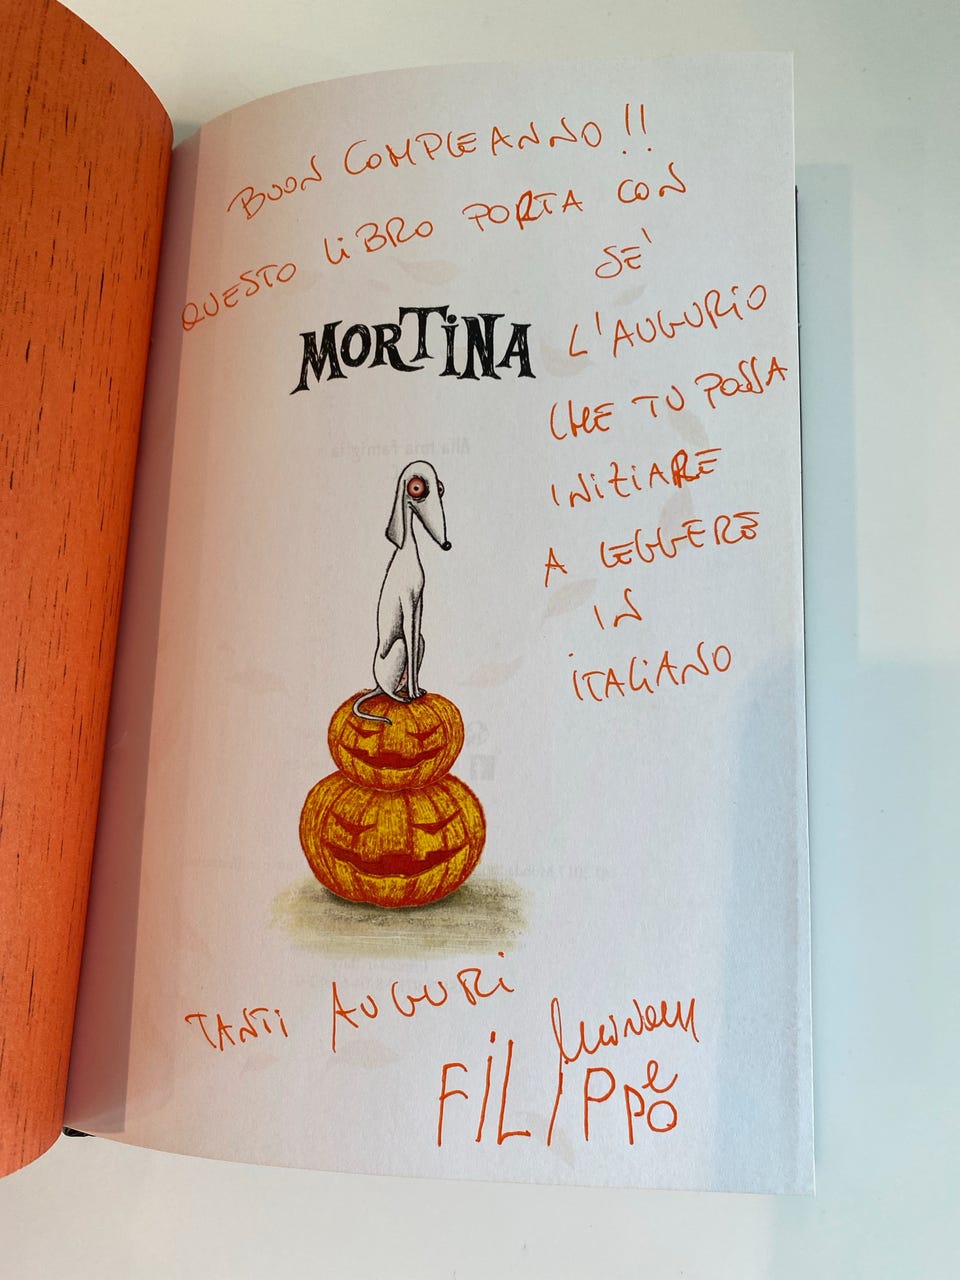 BUON COMPLEANNO!!
QUESTO LIBRO PORTA CON
SE'
MORTINA
L'AUGURIO
CHE TU POSSA
INIZIARE
A LEGGERE
IN
ITALIANO
TANTI AUGURI
e
FILIPPO